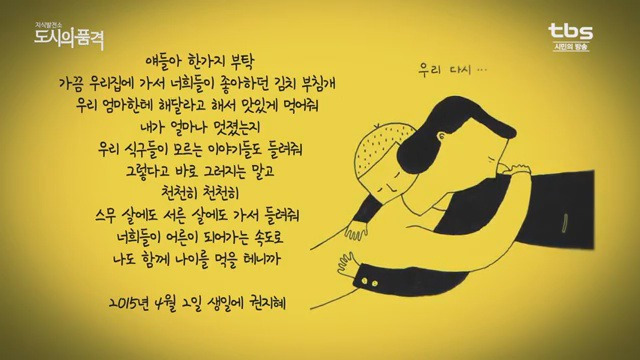 지식발전소
도시의품격
tbs
시민의 방송
얘들아 한가지 부탁
가끔 우리집에 가서 너희들이 좋아하던 김치 부침개
우리 엄마한테 해달라고 해서 맛있게 먹어줘
내가 얼마나 멋졌는지
우리 식구들이 모르는 이야기들도 들려줘
그렇다고 바로 그러지는 말고
천천히 천천히
스무 살에도 서른 살에도 가서 들려줘
너희들이 어른이 되어가는 속도로
나도 함께 나이를 먹을 테니까
2015년 4월 2일 생일에 권지혜
우리 다시 ...